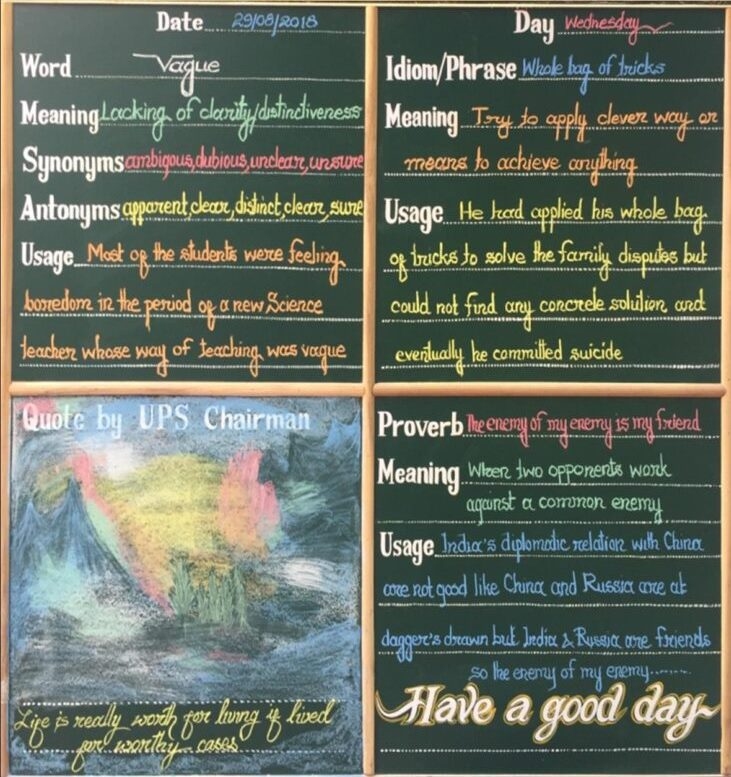 Date 29/08/2018
Word Vague
Meaning Lacking of clarity/distinctiveness
Synonyms ambigous,dubious,unclear,unsure
Antonyms apparent,clear,distinct,clear,sure
Usage Most of the students were feeling
boredom in the period of a new Science
teacher whose way of teaching was vague
Day Wednesday
Idiom/Phrase Whole bag of tricks
Meaning Try to apply clever way or
means to achieve anything
Usage He had applied his whole bag
of tricks to solve the family disputes but
could not find any concrele solution and
eventually he committed suicide
Quote by UPS Chairman
Life is really worth for living if lived
for worthy cases
Proverb The enemy of my enemy is my friend
Meaning When two opponents work
against a common enemy
Usage India's diplomatic relation with China
are not good like China and Russia are at
dagger's drawn but India & Russia are friends
so the enemy of my enemy.......
Have a good day